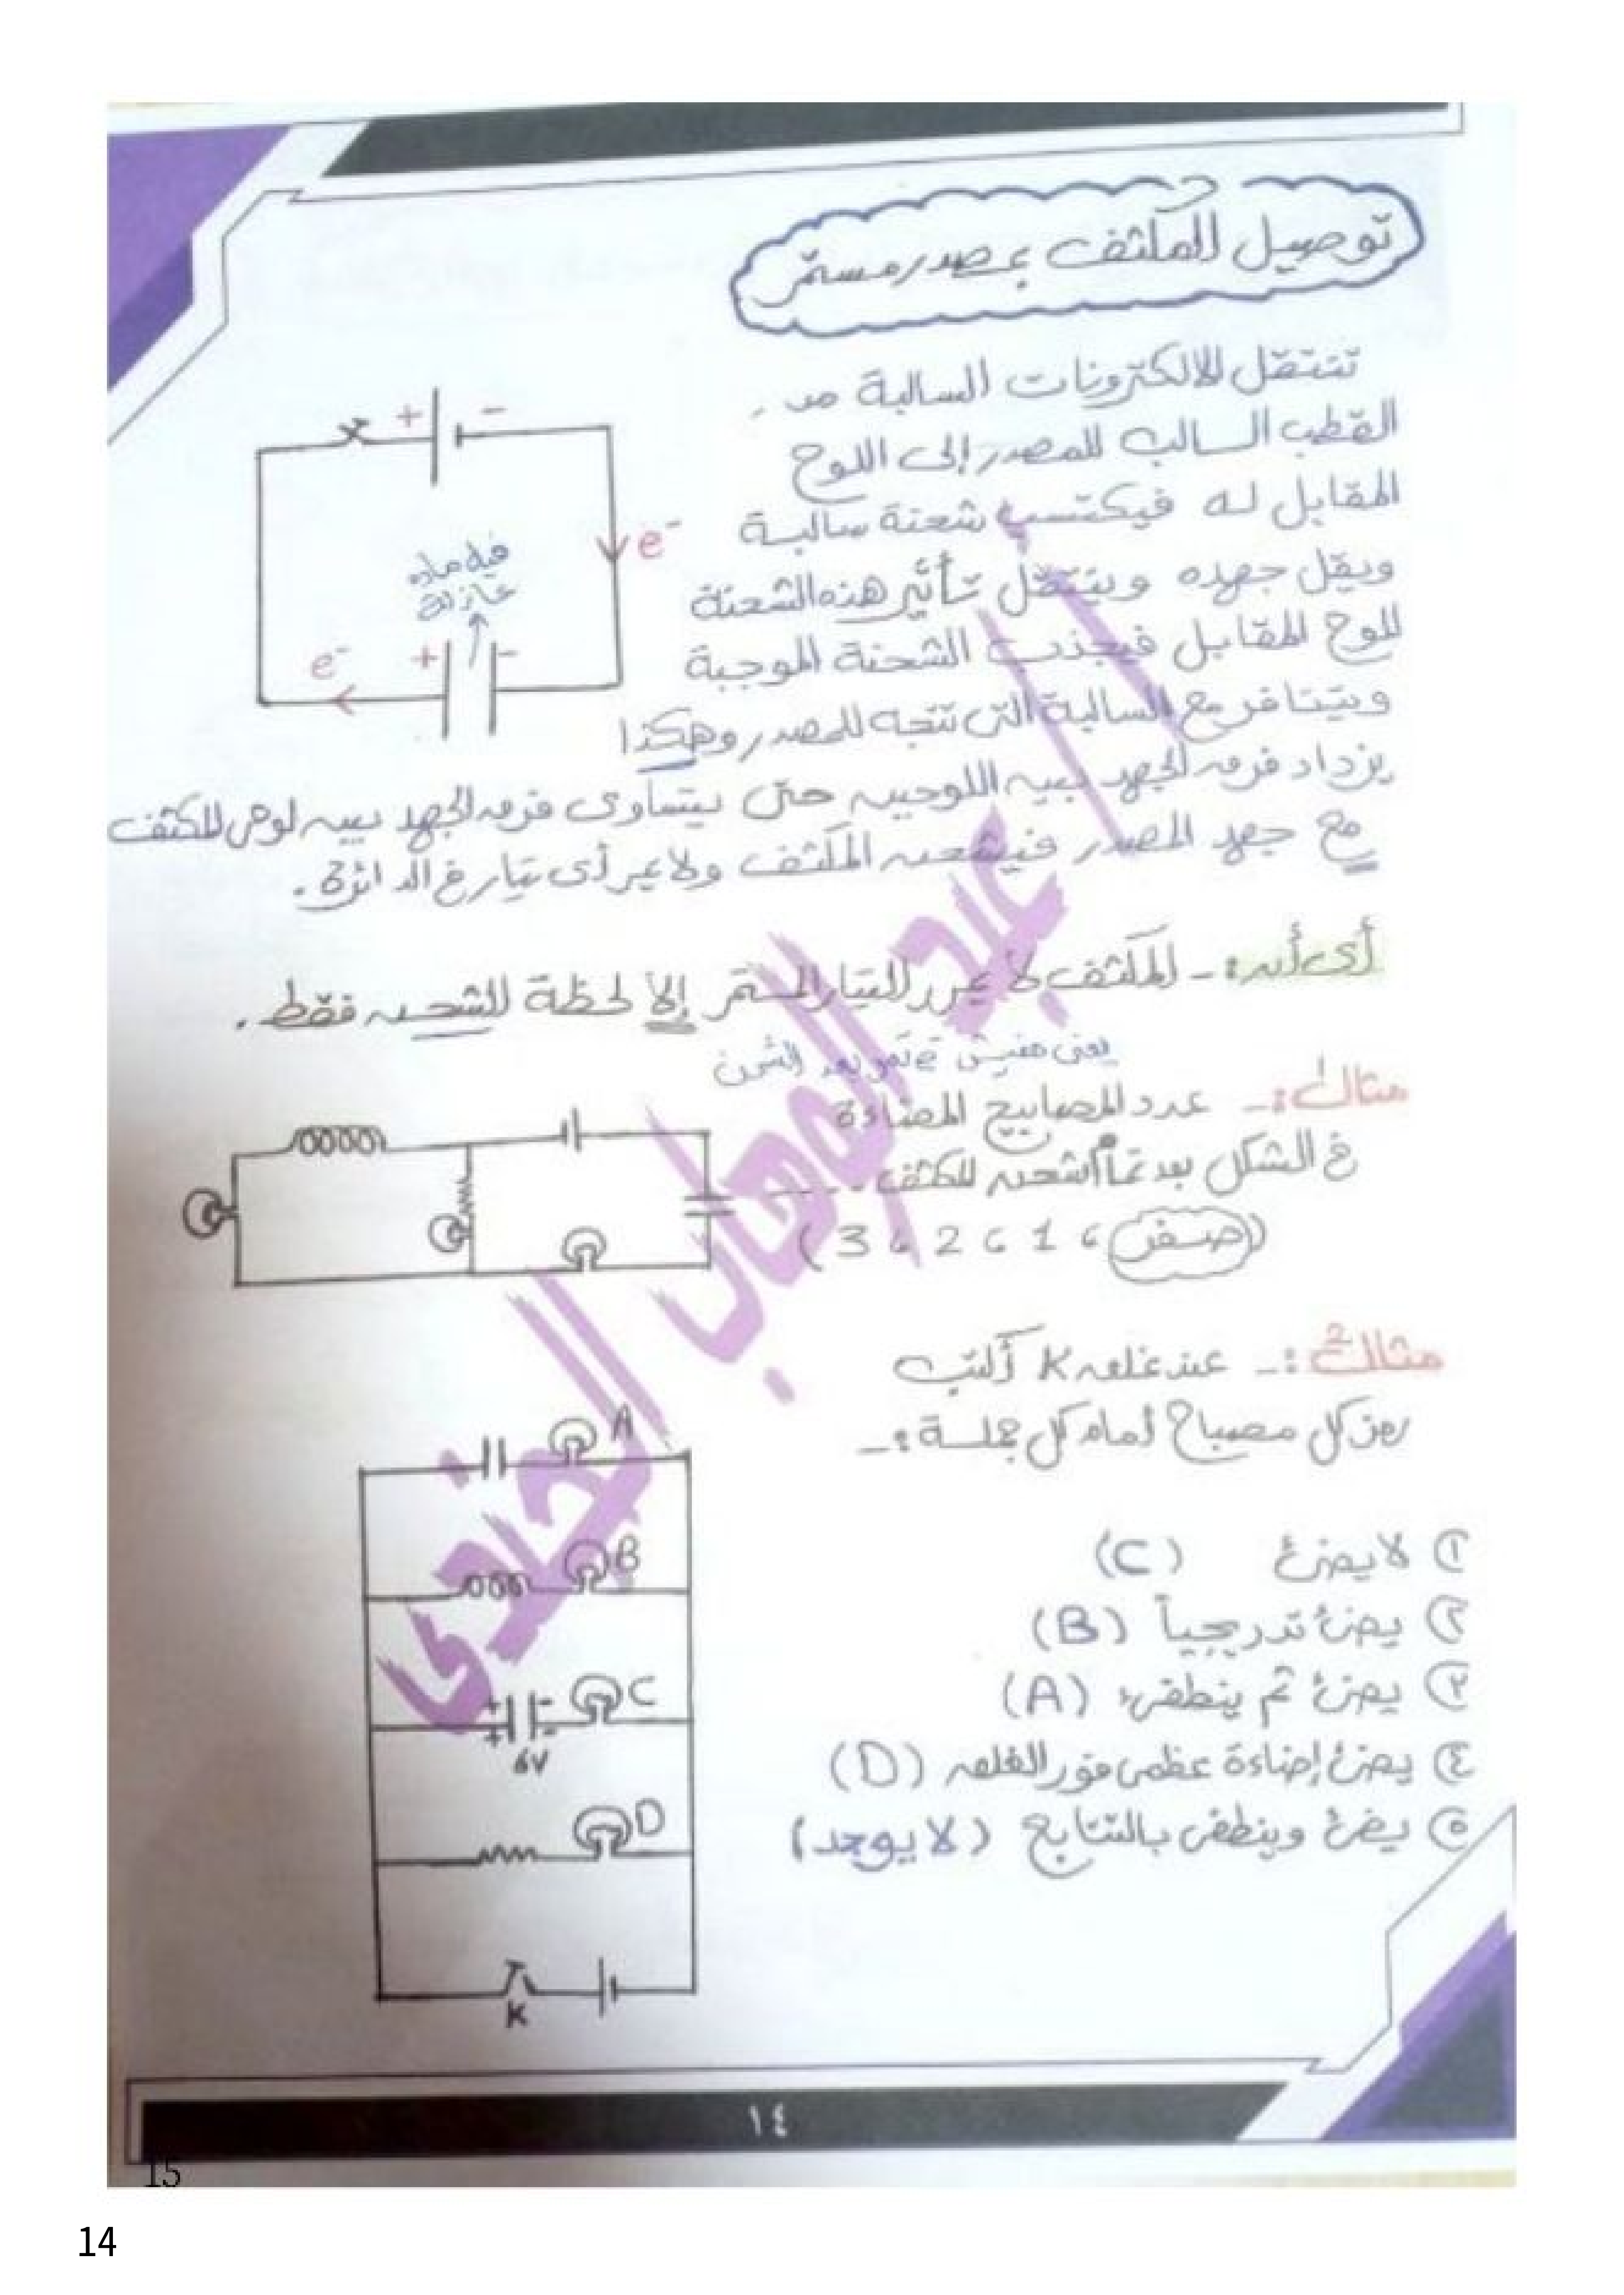 توصيل المكثف بمصدر مستمر
تنتقل الالكترونات السالبة من
القطب السالب للمصدر إلى اللوح
المقابل له فيكتسب شحنة سالبة
ويقل جهده وينتقل تأثير هذه الشحنة
للوح المقابل فيجذب الشحنة الموجبة
ويتنافر مع السالبة التى تتجه للمصدر وهكذا
يزداد فرق الجهد بين اللوحين حتى يتساوى فرق الجهد بين لوحى المكثف
مع جهد المصدر فيشحن المكثف ولا يمر أى تيار فى الدائرة.
+ -
e-
فيه ماده
عازلة
e- + -
أى أن :- المكثف لا يمرر التيار المستمر إلا لحظة الشحن فقط.
يعنى مفيش e تمر بعد الشحن
مثال1 :- عدد المصابيح المضاءة
فى الشكل بعد تمام شحن المكثف ....
(صفر ، 1 ، 2 ، 3)
مثال2 :- عند غلق K أكتب
رمز كل مصباح أمام كل جملة :-
① لا يضئ (C)
② يضئ تدريجياً (B)
③ يضئ ثم ينطفئ (A)
④ يضئ إضاءة عظمى فور الغلق (D)
⑤ يضئ وينطفئ بالتتابع (لا يوجد)
A
B
C
+ -
+ -
6V
D
K
عبد الوهاب الجندى
١٤
15
14